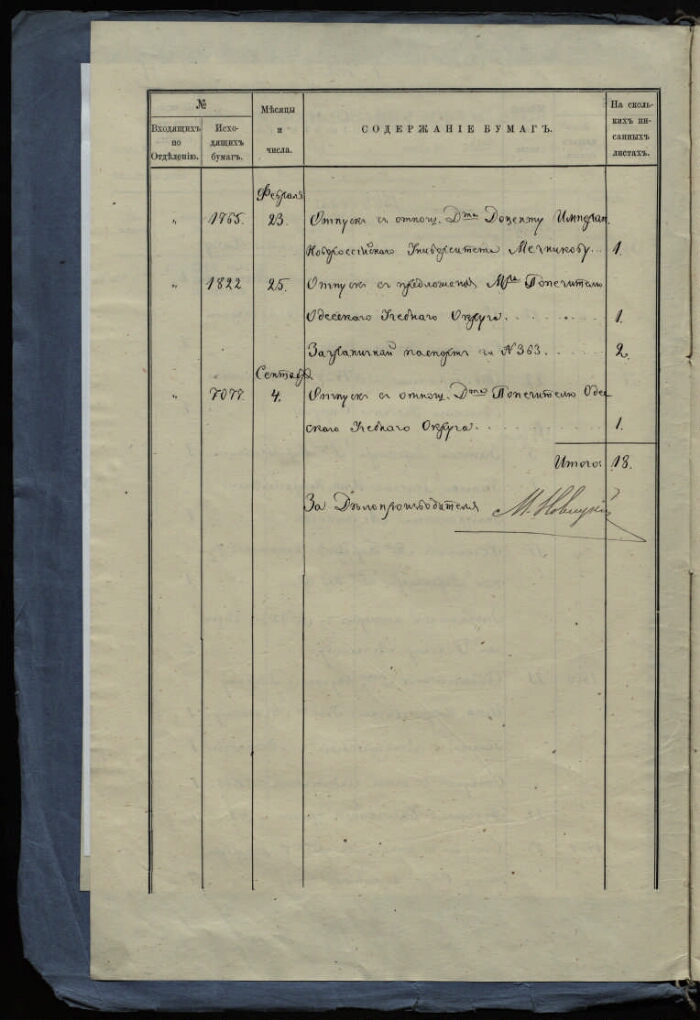 №
Входящихъ по Отдѣленію.
Исходящихъ бумагъ.
Мѣсяцы и числа.
СОДЕРЖАНІЕ БУМАГЪ.
На сколькихъ писанныхъ листахъ.
Февраля
" 1765. 23. Отпускъ съ отнош. Д-та Доценту Императ.
Новороссійскаго Университета Мечникову... 1.
" 1822 25. Отпускъ съ предложенія Попечителю
Одесскаго Учебнаго Округа. 1.
Заграничный паспортъ за N 363. 2.
Сентября
" 7077. 4. Отпускъ съ отнош. Д-та Попечителю Одес
скаго Учебнаго Округа. 1.
Итого 18.
За Дѣлопроизводителя М. Новицкій